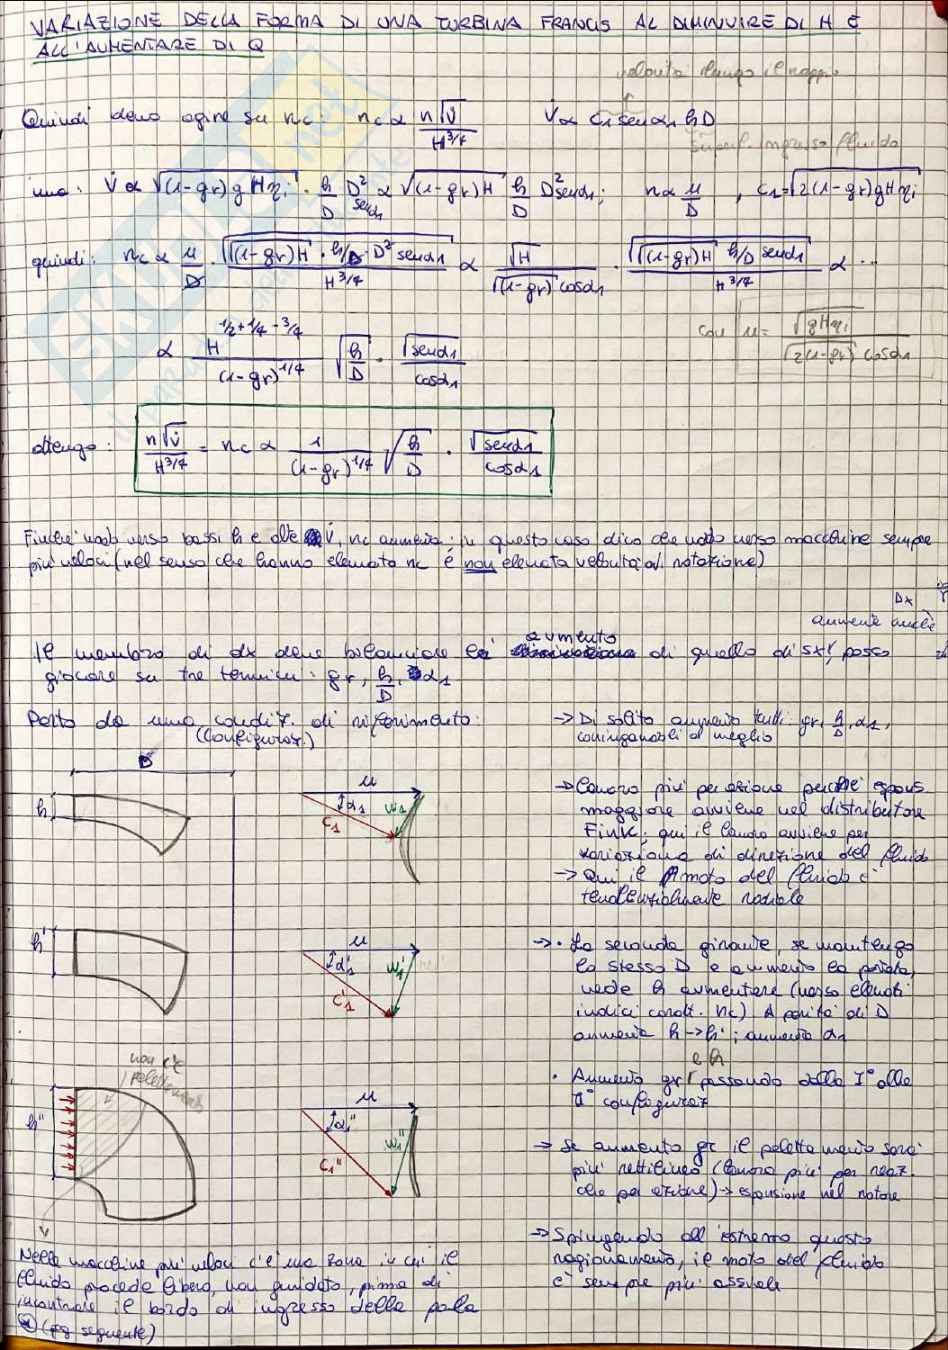 VARIAZIONE DELLA FORMA DI UNA TURBINA FRANCIS AL DIMINUIRE DI H E
ALL'AUMENTARE DI Q
velocità lungo il raggio
Quindi devo agire su nc: nc ∝ n√V̇ / H^3/4    V̇ ∝ c1 senα1 h D
superf. ingresso fluido
ma: V̇ ∝ √((1-gr) g H ηi) · h/D D² senα1 ∝ √((1-gr)H) h/D D² senα1; n ∝ u/D , c1 = √(2(1-gr)gHηi)
quindi: nc ∝ u/D · √(√((1-gr)H) · h/D · D² senα1) / H^3/4 ∝ √H / (√(1-gr) cosα1) · √(√((1-gr)H) h/D senα1) / H^3/4 ∝ ...
∝ H^(1/2+1/4-3/4) / (1-gr)^1/4 √(h/D) · √senα1 / cosα1
con u = √(gHηi) / (√(2(1-gr)) cosα1)
ottengo: n√V̇ / H^3/4 = nc ∝ 1 / (1-gr)^1/4 √(h/D) · √senα1 / cosα1
Finché vado verso bassi h e alte V̇, nc aumenta: in questo caso dico che vado verso macchine sempre
più veloci (nel senso che hanno elevato nc e non elevata velocità di rotazione)
Dx
aumenta anche
Il membro di dx deve bilanciare aumento di quello di sx, posso
giocare su tre termini: gr, h/D, α1
Parto da una condiz. di riferimento:
(configuraz.)
→ Di solito aumento tutti: gr, h/D, α1,
coniugandoli al meglio
D
h
u
α1
c1
w1
→ Lavora più per azione perché espans.
maggiore avviene nel distributore
Fink; qui il lavoro avviene per
variazione di direzione del fluido
→ Qui il moto del fluido è
tendenzialmente radiale
h'
u
α1'
c1'
w1'
→ · La seconda girante, se mantengo
lo stesso D e aumento la portata,
vede h aumentare (verso elevati
indici caratt. nc) A parità di D
aumenta h → h'; aumento α1
e h
· Aumento gr passando dalla I° alla
II° configuraz
non c'è
h''
u
α1''
c1''
w1''
→ Se aumento gr il palettamento sarà
più rettilineo (lavora più per reaz.
che per azione) → espansione nel rotore
→ Spingendo all'estremo questo
ragionamento, il moto del fluido
è sempre più assiale
Nelle macchine più veloci c'è una zona in cui il
fluido procede libero, non guidato, prima di
incontrare il bordo di ingresso della pala
(pg seguente)